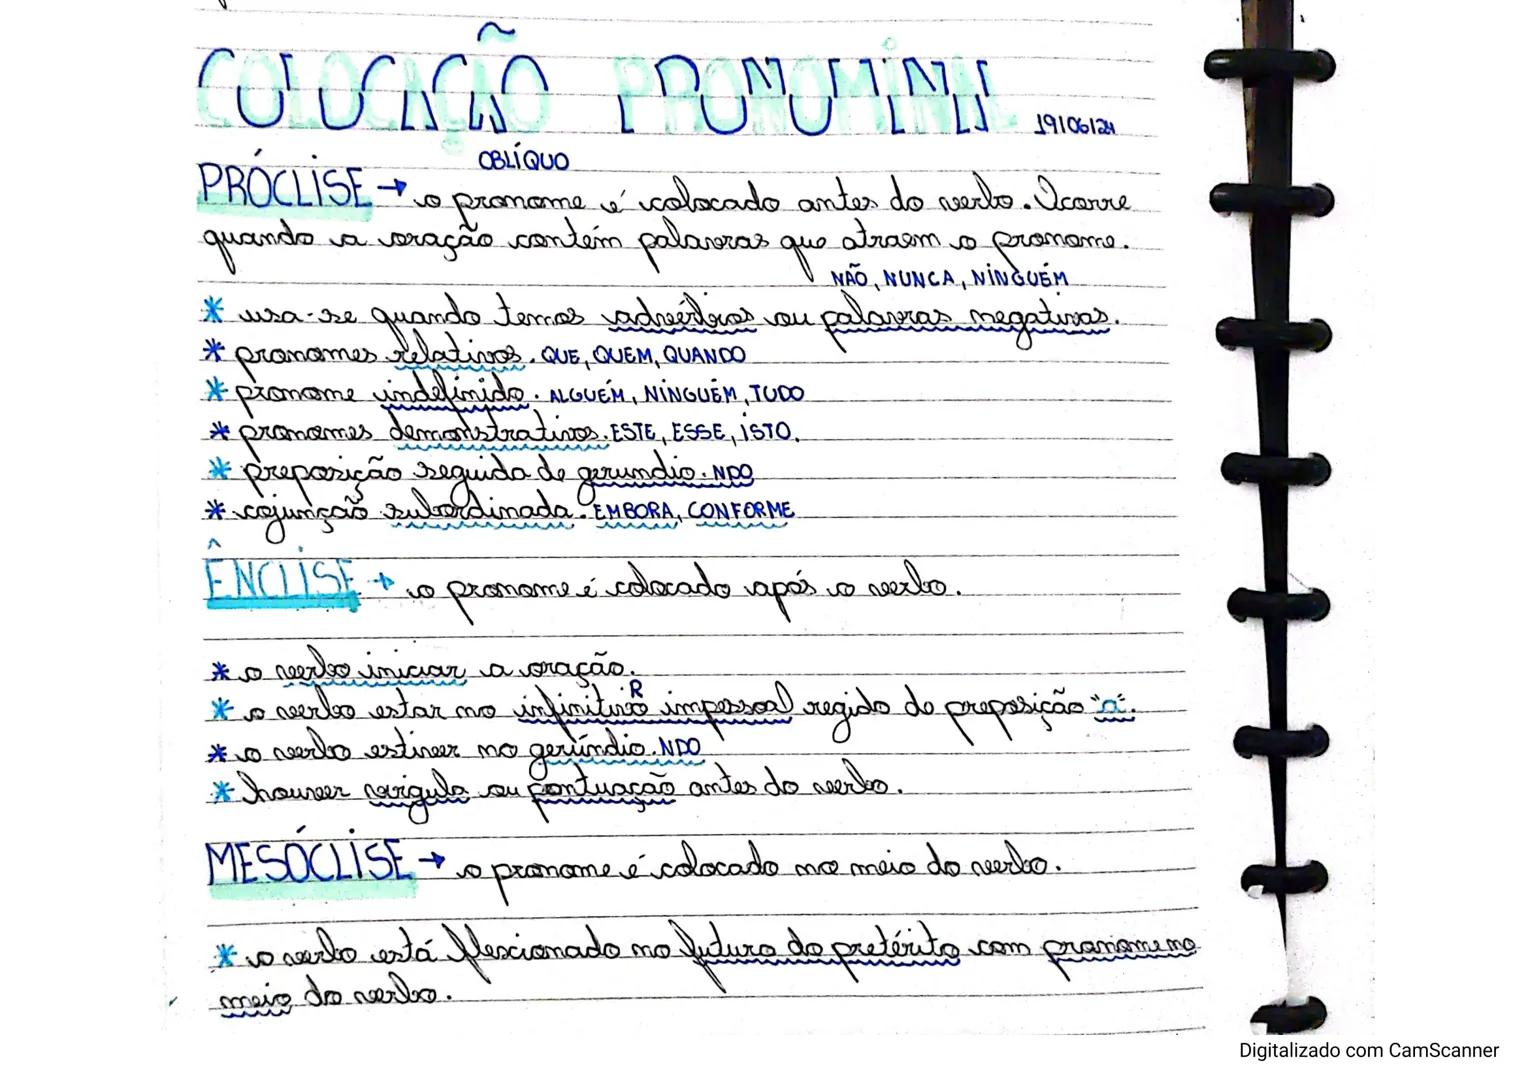 COLOCAÇÃO PRONOMINAL 19/06/24
OBLÍQUO
PRÓCLISE → o pronome é colocado antes do verbo. Ocorre
quando a oração contém palavras que atraem o pronome.
NÃO, NUNCA, NINGUÉM
* usa-se quando temos advérbios ou palavras negativas.
* pronomes relativos. QUE, QUEM, QUANDO
* pronome indefinido. ALGUÉM, NINGUÉM, TUDO
* pronomes demonstrativos. ESTE, ESSE, ISTO.
* preposição seguida de gerundio. NDO
* cojunção subordinada. EMBORA, CONFORME
ÊNCLISE → o pronome é colocado após o verbo.
* o verbo iniciar a oração.
R
* o verbo estar no infinitivo impessoal regido de preposição "a".
* o verbo estiver no gerúndio. NDO
* houver vírgula ou pontuação antes do verbo.
MESÓCLISE → o pronome é colocado no meio do verbo.
* o verbo está flexionado no futuro do pretérito com pronome no
meio do verbo.
Digitalizado com CamScanner